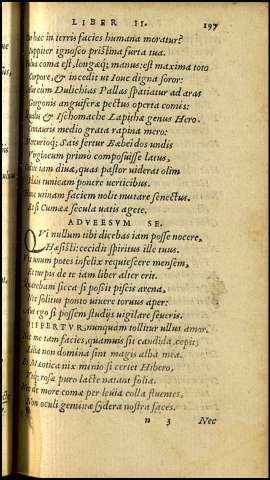 LIBER II. 197
hæc in terris facies humana moratur?
Iuppiter ignosco pristina furta tua.
Fulua coma est, longæq; manus: est maxima toto
Corpore, & incedit ut Ioue digna soror:
Aut cum Dulichias Pallas spatiatur ad aras
Gorgonis anguiferæ pectus operta comis:
& Ischomache Lapithæ genus Hero.
Centauris medio grata rapina mero:
Mercurioq; Sais fertur Bæbeidos undis
Virgineum primo composuisse latus,
iam diuæ, quas pastor uiderat olim
tunicam ponere uerticibus.
utinam faciem nolit mutare senectus.
Etsi Cumææ secula uatis agete.
ADVERSVM SE.
QVi nullum tibi dicebas iam posse nocere,
Hæsisti: cecidit spiritus ille tuus.
Vix unum potes infelix requiescere mensem,
Et turpis de te iam liber alter erit.
Quærebam sicca si possit piscis arena,
Nec solitus ponto uiuere toruus aper:
Aut ego si possem studijs uigilare seueris.
DIFERTVR, nunquam tollitur ullus amor.
Nec me tam facies, quamuis sit candida, cepit,
domina sint magis alba mea.
Vt Mæotica nix minio si certet Hibero,
Vtq; rosæ puro lacte natant folia.
Nec de more comæ per leuia colla fluentes,
Non oculi geminæ sydera nostra faces.
n 3 Nec